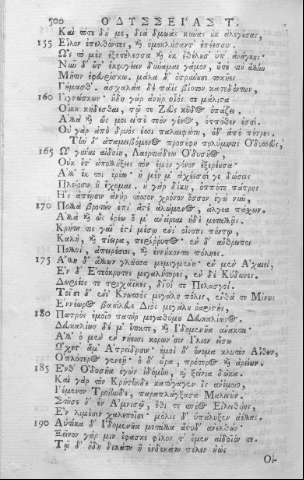 500 ΟΔΥΣΣΕΙΑΣ Τ.
Καὶ τότε δή με, διὰ δμωὰς κύνας οὐκ ἀλεγούσας,
155 Εἷλον ἐπελθόντες, καὶ ὁμόκλησαν ἐπέεσσιν.
Ὣς τὸ μὲν ἐξετέλεσσα καὶ οὐκ ἐθέλουσ' ὑπ' ἀνάγκης·
Νῦν δ' οὔτ' ἐκφυγέειν δύναμαι γάμον, οὔτε τιν' ἄλλην
Μῆτιν ἐφευρίσκω, μάλα δ' ὀτρύνουσι τοκῆες
Γήμασθ', ἀσχαλάᾳ δὲ πάϊς βίοτον κατεδόντων,
160 Γιγνώσκων· ἤδη γὰρ ἀνὴρ οἷός τε μάλιστα
Οἴκου κήδεσθαι, τῷ τε Ζεὺς κῦδος ὀπάζει.
Ἀλλὰ καὶ ὥς μοι εἰπὲ τεὸν γένος, ὁππόθεν ἐσσί.
Οὐ γὰρ ἀπὸ δρυός ἐσσι παλαιφάτου, οὐδ' ἀπὸ πέτρης.
Τὴν δ' ἀπαμειβόμενος προσέφη πολύμητις Ὀδυσσεύς,
165 Ὦ γύναι αἰδοίη Λαερτιάδεω Ὀδυσῆος,
Οὐκ ἔτ' ἀπολλήξεις τὸν ἐμὸν γόνον ἐξερέουσα·
Ἀλλ' ἔκ τοι ἐρέω· ἦ μέν μ' ἀχέεσσί γε δώσεις
Πλείοσιν ἢ ἔχομαι. ἡ γὰρ δίκη, ὁππότε πάτρης
Ἧς ἀπέῃσιν ἀνὴρ τόσσον χρόνον ὅσσον ἐγὼ νῦν,
170 Πολλὰ βροτῶν ἐπὶ ἄστε' ἀλώμενος, ἄλγεα πάσχων.
Ἀλλὰ καὶ ὣς ἐρέω ὅ μ' ἀνείρεαι ἠδὲ μεταλλᾷς.
Κρήτη τις γαῖ' ἐστὶ μέσῳ ἐνὶ οἴνοπι πόντῳ,
Καλὴ, καὶ πίειρα, περίρρυτος· ἐν δ' ἄνθρωποι
Πολλοὶ, ἀπειρέσιοι, καὶ ἐννήκοντα πόληες.
175 Ἄλλη δ' ἄλλων γλῶσσα μεμιγμένη· ἐν μὲν Ἀχαιοὶ,
Ἐν δ' Ἐτεόκρητες μεγαλήτορες, ἐν δὲ Κύδωνες,
Δωριέες τε τριχάϊκες, δῖοί τε Πελασγοί.
Τοῖσι δ' ἐνὶ Κνωσσὸς μεγάλη πόλις, ἔνθά τε Μίνως
Ἐννέωρος βασίλευε Διὸς μεγάλου ὀαριστής,
180 Πατρὸς ἐμοῖο πατὴρ μεγαθύμου Δευκαλίωνος.
Δευκαλίων δέ μ' ἔτικτε, καὶ Ἰδομενῆα ἄνακτα·
Ἀλλ' ὁ μὲν ἐν νήεσσι κορωνίσιν Ἴλιον εἴσω
ᾬχεθ' ἅμ' Ἀτρείδησιν· ἐμοὶ δ' ὄνομα κλυτὸν Αἴθων,
Ὁπλότερος γενεῇ· ὁ δ' ἄρα πρότερος καὶ ἀρείων.
185 Ἔνθ' Ὀδυσῆα ἐγὼν ἰδόμην, καὶ ξείνια δῶκα.
Καὶ γὰρ τὸν Κρήτηνδε κατήγαγεν ἲς ἀνέμοιο,
Ἱέμενον Τροίηνδε, παραπλάγξασα Μαλειῶν.
Στῆσε δ' ἐν Ἀμνισῷ, ὅθι τε σπέος Εἰλειθυίης,
Ἐν λιμέσιν χαλεποῖσι· μόλις δ' ὑπάλυξεν ἀέλλας.
190 Αὐτίκα δ' Ἰδομενῆα μετάλλα ἄστυδ' ἀνελθών·
Ξεῖνον γάρ μιν ἔφασκε φίλον τ' ἔμεν αἰδοῖόν τε.
Τῷ δ' ἤδη δεκάτη ἢ ἑνδεκάτη πέλεν ἠὼς